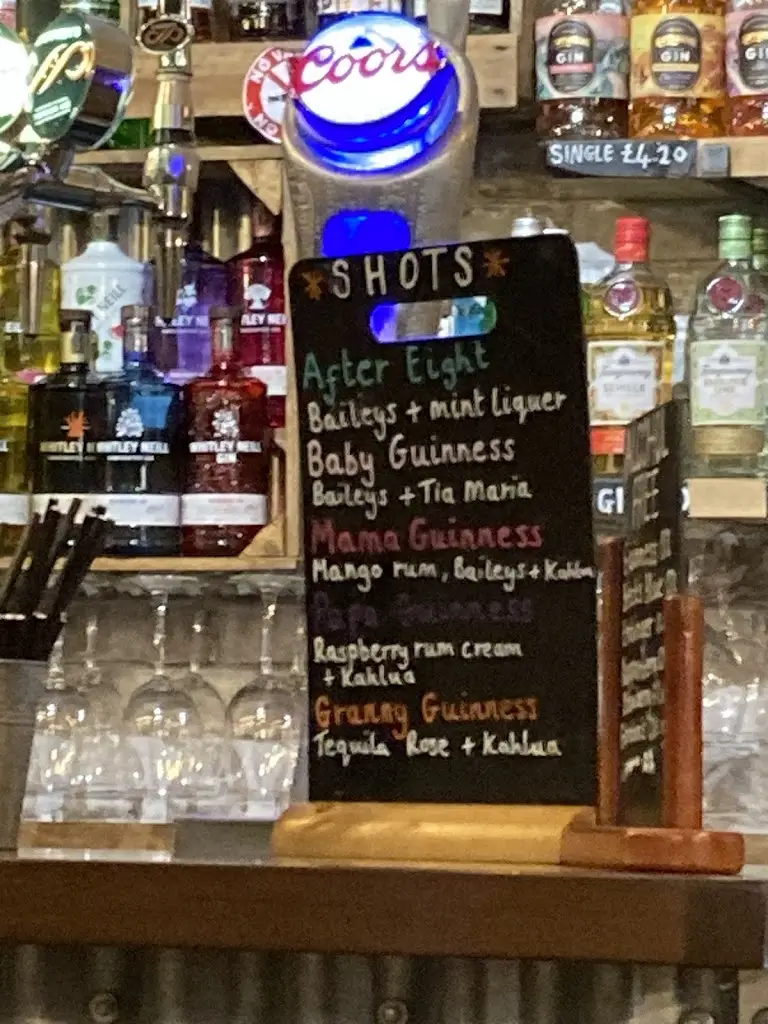 Coors
GIN
GIN
SINGLE £4.20
SHOTS
After Eight
Baileys + mint liquer
Baby Guinness
Baileys + Tia Maria
Mama Guinness
Mango rum, Baileys + Kahlua
Papa Guinness
Raspberry rum cream
+ Kahlua
Granny Guinness
Tequila Rose + Kahlua
WHITLEY NEILL
WHITLEY NEILL
GIN